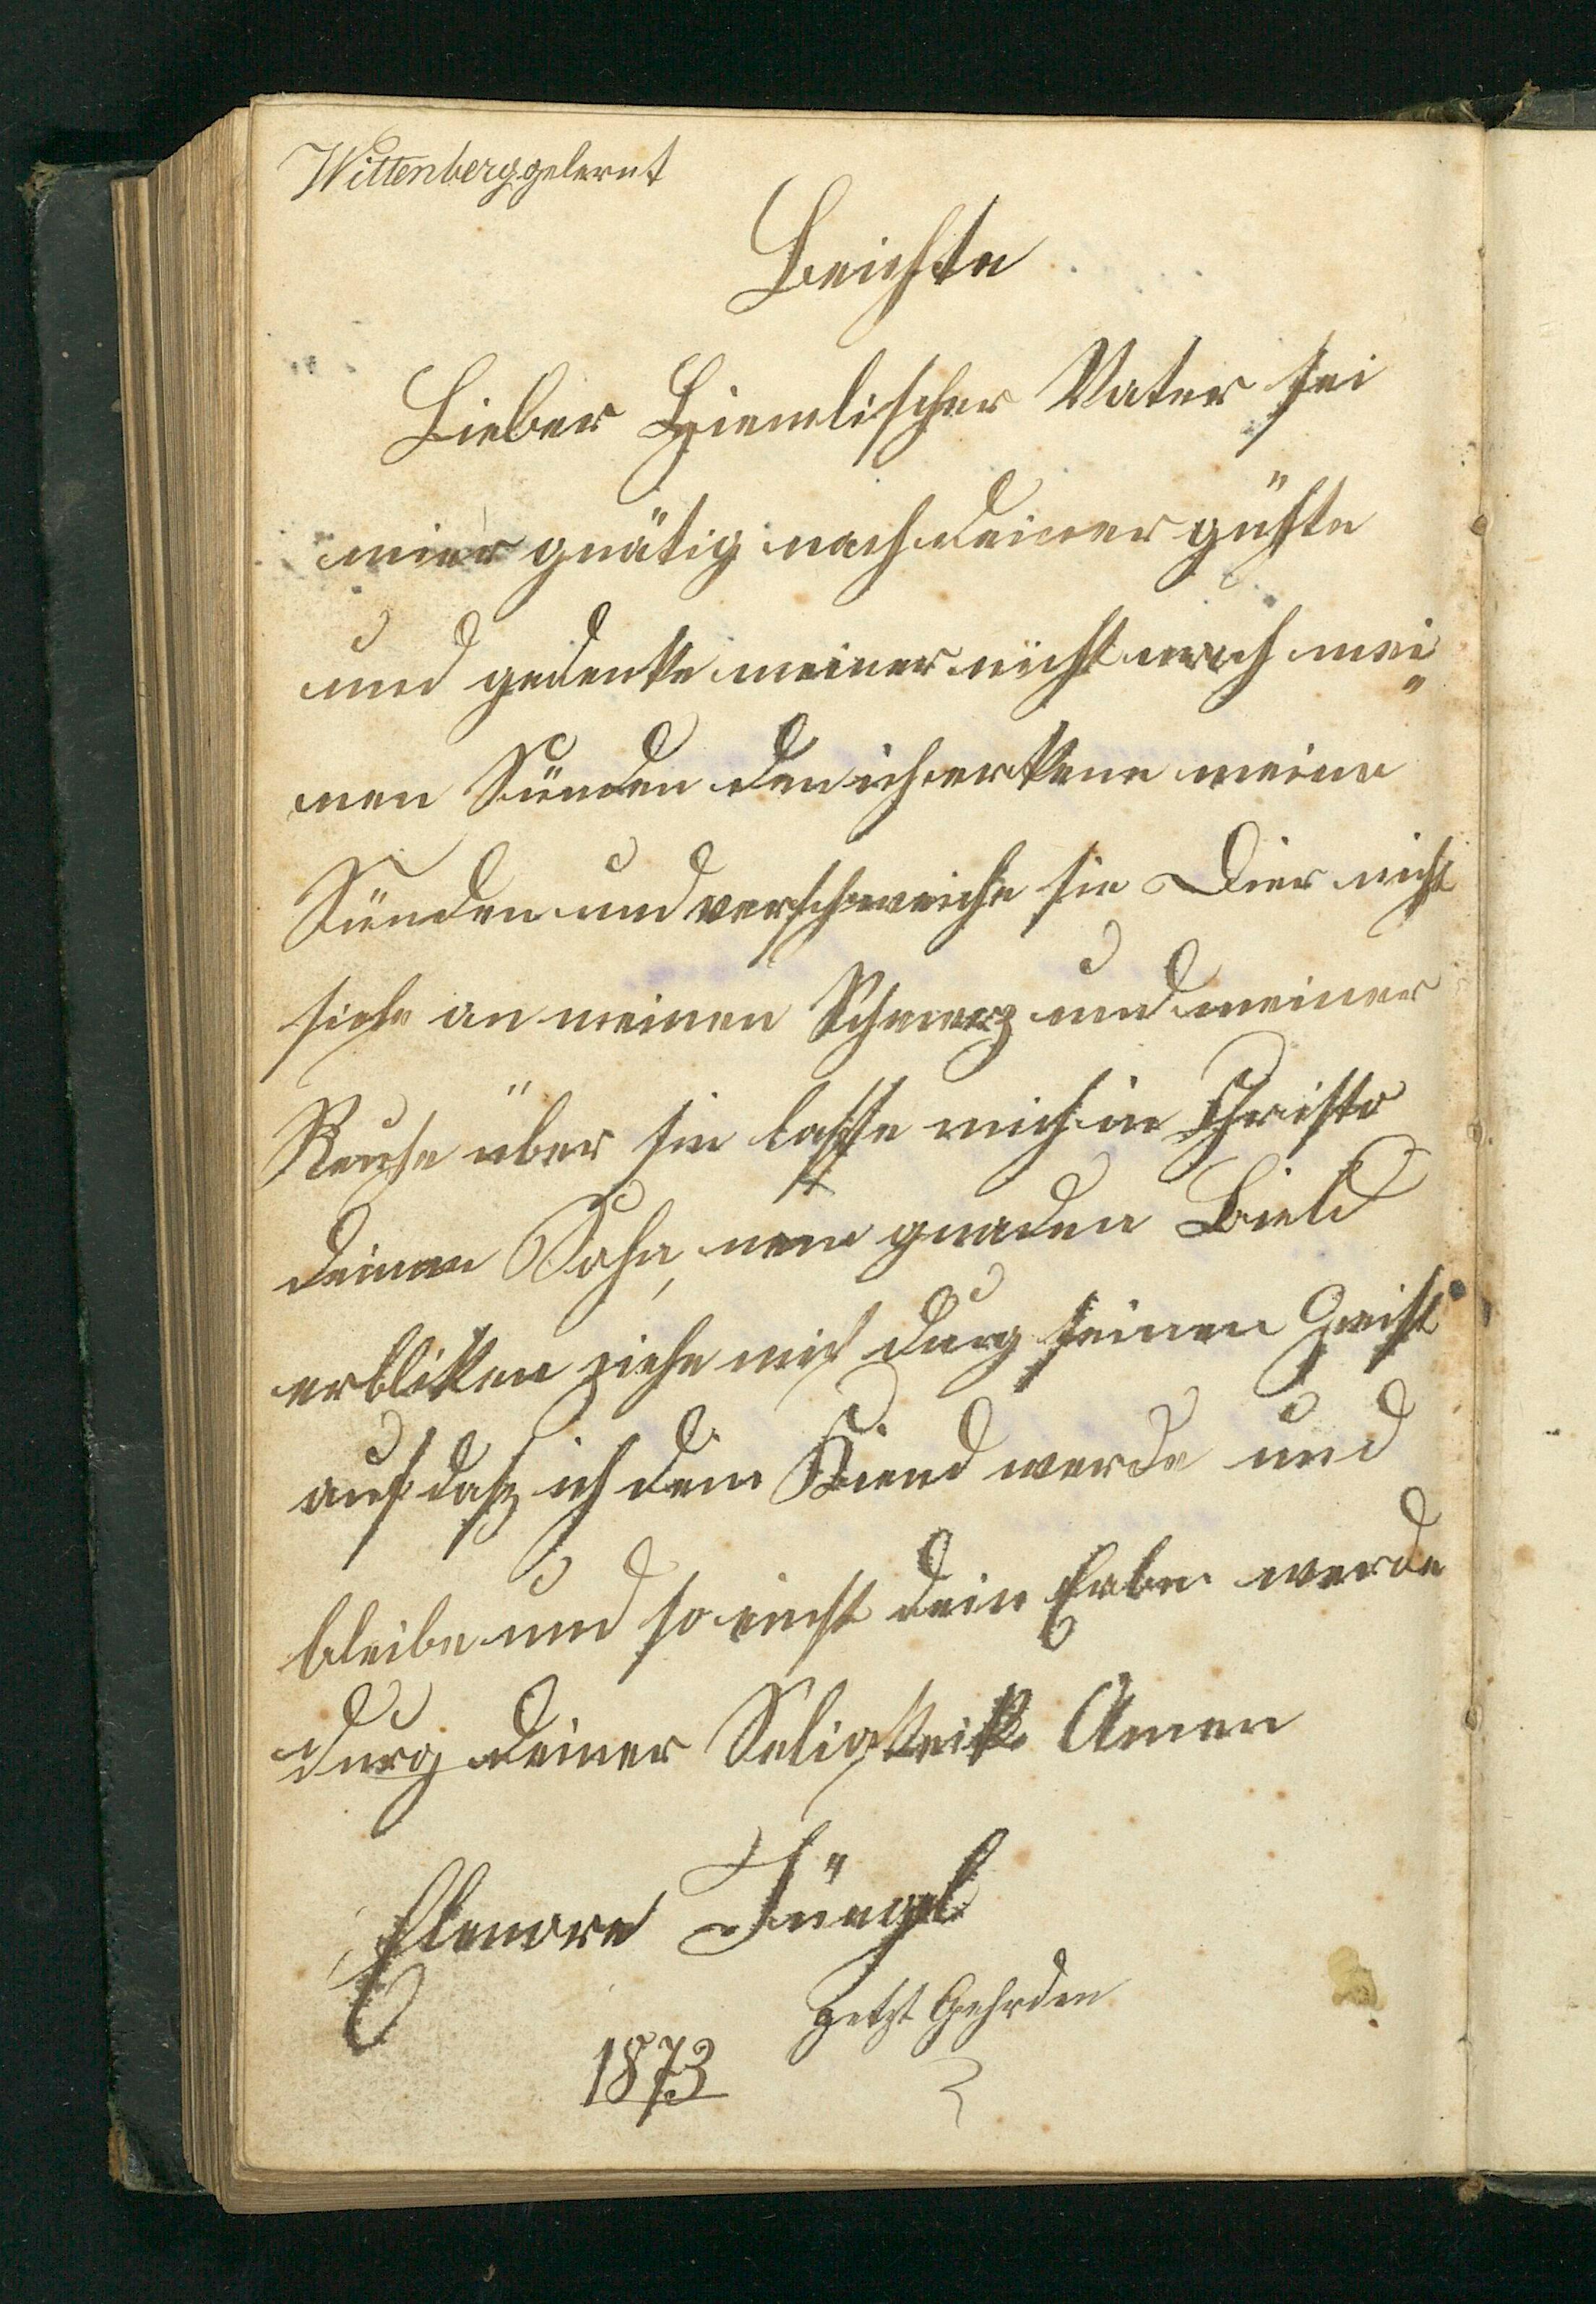 Wittenberg gelernt
Beichte
Lieber Hiemlischer Vater sei
mier gnätig nach deiner gühte
und gedenke meiner nicht nach mei„
nen Sünden den ich erkene meine
Sünden und verschweiche sie Dier nicht
siehe an meinen Schmerz und meiner
Reuhe über sie lasse mich in Christo
deinen Sohn, nem gnaden Bield
erblikken ziehe mich durg seinen Geist
auf dasz ich dein Kiend werde und
bleibe und so einst dein Erbe werde
durg deiner Seligkeit Amen
Elenore Jüngel
jetzt Gehrden
1873